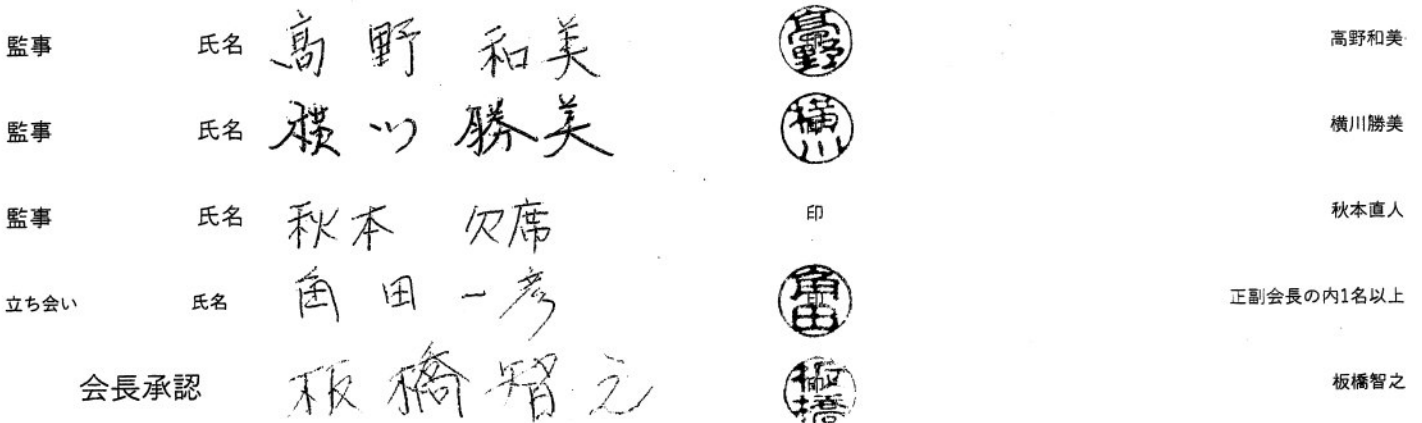 監事 氏名 髙野 和美 髙野 高野和美
監事 氏名 横川 勝美 横川 横川勝美
監事 氏名 秋本 欠席 印 秋本直人
立ち会い 氏名 角田 一彦 角田 正副会長の内1名以上
会長承認 板橋智之 板橋 板橋智之